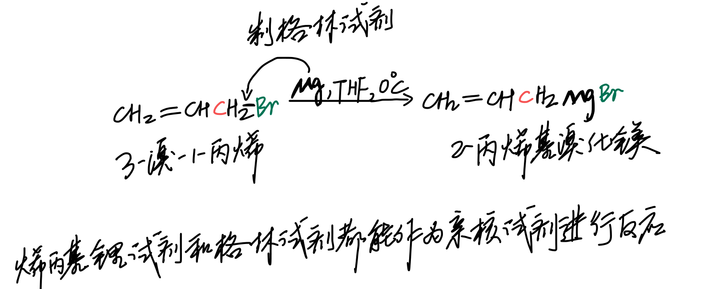 制格林试剂
CH2=CHCH2-Br Mg,THF,0℃ CH2=CHCH2MgBr
3-溴-1-丙烯 2-丙烯基溴化镁
烯丙基锂试剂和格林试剂都能作为亲核试剂进行反应